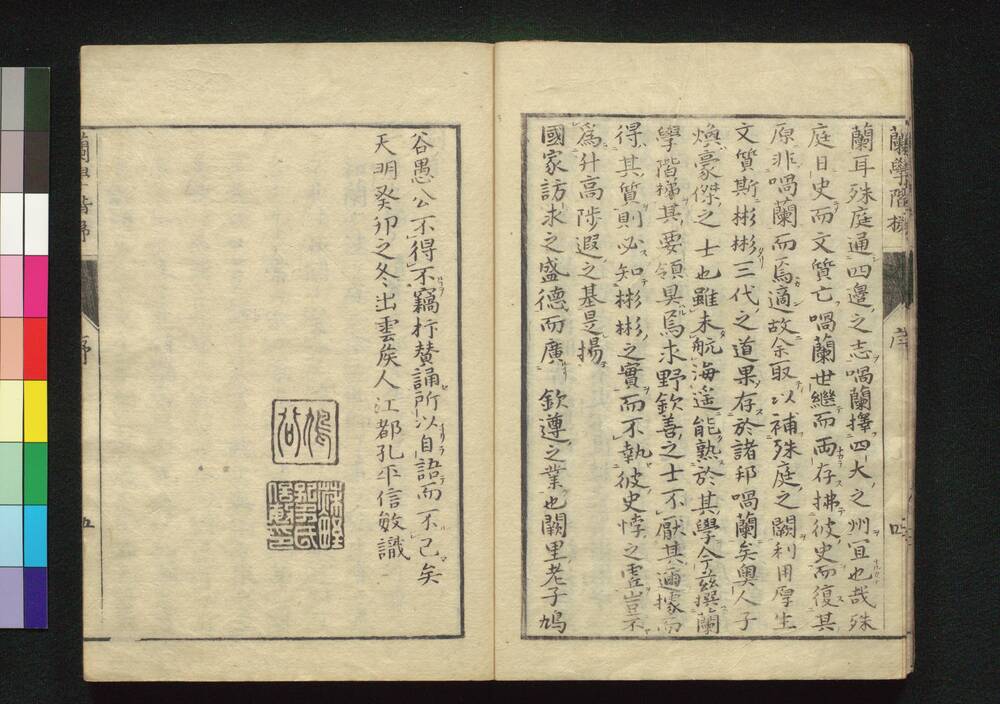 蘭學階梯
序
四
蘭耳殊庭通四邊之志喎蘭擇四大之州冝也哉殊
庭日史而文質亡喎蘭世繼而両存拂彼史而復其
原非喎蘭而焉適故余取以補殊庭之闕利用厚生
文質斯彬彬三代之道果存於諸邦喎蘭矣奥人子
煥豪傑之士也雖未航海遥能熟於其學今茲撰蘭
學階梯其要領具焉求野欽善之士不厭其邇據而
得其質則必知彬彬之實而不執彼史悖之虚豈不
爲升高陟遐之基是揚
國家訪求之盛德而廣 欽遵之業也闕里老子鳩
谷愚公不得不竊抃賛誦所以自語而不已矣
天明癸卯之冬出雲矦人江都孔平信敏識
鳩谷
孔平氏信敏印
蘭學階梯
序
五